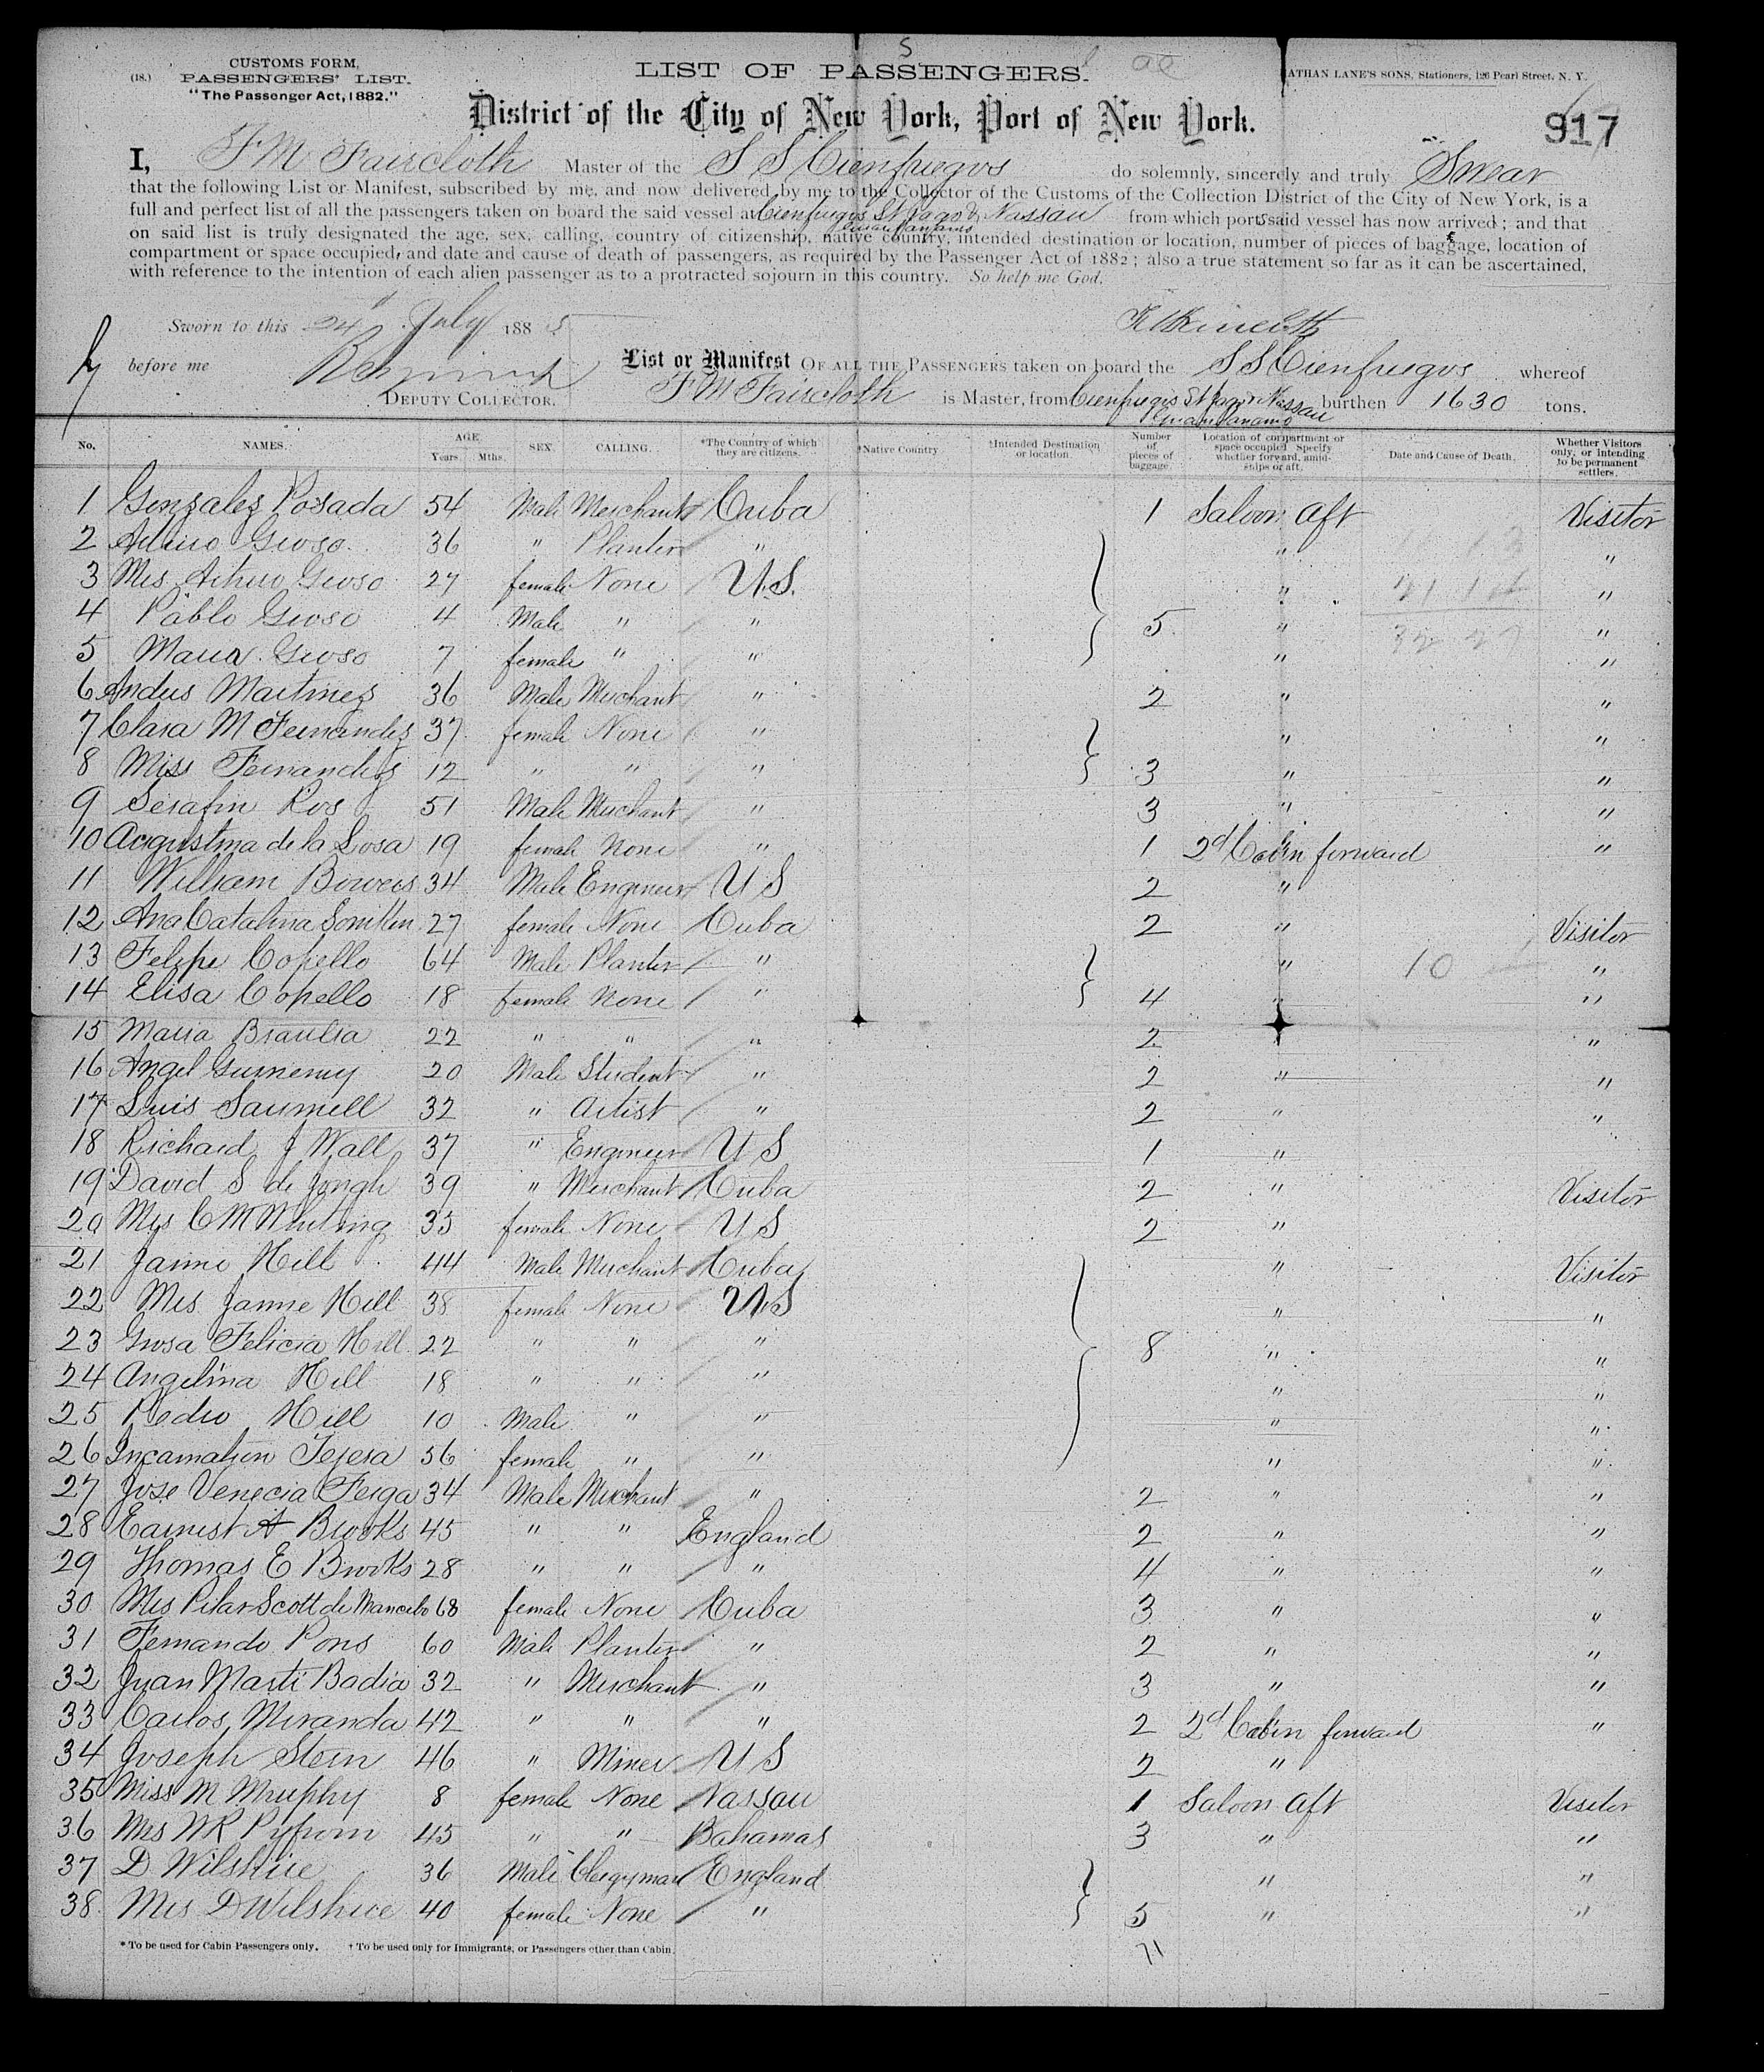 S
CUSTOMS FORM,
(18.) PASSENGERS' LIST.
"The Passenger Act, 1882."
LIST OF PASSENGERS.
ATHAN LANE'S SONS, Stationers, 126 Pearl Street, N. Y.
District of the City of New York, Port of New York.
917
I, F M Faircloth Master of the S S Cienfuegos do solemnly, sincerely and truly Swear
that the following List or Manifest, subscribed by me, and now delivered by me to the Collector of the Customs of the Collection District of the City of New York, is a
full and perfect list of all the passengers taken on board the said vessel at Cienfuegos St Jago & Nassau from which ports said vessel has now arrived; and that
on said list is truly designated the age, sex, calling, country of citizenship, native country, intended destination or location, number of pieces of baggage, location of
compartment or space occupied, and date and cause of death of passengers, as required by the Passenger Act of 1882; also a true statement so far as it can be ascertained,
with reference to the intention of each alien passenger as to a protracted sojourn in this country. So help me God.
Sworn to this 24" July 1885
before me
DEPUTY COLLECTOR.
List or Manifest OF ALL THE PASSENGERS taken on board the S S Cienfuegos whereof
F M Faircloth is Master, from Cienfuegos St Jago Nassau burthen 1630 tons.
No. NAMES. AGE. Years. Mths. SEX. CALLING. *The Country of which they are citizens. †Native Country †Intended Destination or location. Number of pieces of baggage. Location of compartment or space occupied. Specify whether forward, amidships or aft. Date and Cause of Death. Whether Visitors only, or intending to be permanent settlers.
1 Gonzalez Posada 54 Male Merchant Cuba 1 Saloon Aft Visitor
2 36 " Planter " " "
3 Mrs Arturo 27 female None U.S. " "
4 Pablo 4 Male " " 5 " "
5 Maria 7 female " " " "
6 Andres Martinez 36 Male Merchant " 2 " "
7 Clara M Fernandez 37 female None " " "
8 Miss Fernandez 12 " " " 3 " "
9 Serafin Ros 51 Male Merchant " 3 " "
10 Augustina de la Losa 19 female None " 1 2d Cabin forward "
11 William Bowers 34 Male Engineer U S 2 "
12 Ana Catalina 27 female None Cuba 2 " Visitor
13 Felipe Copello 64 Male Planter " " 10 "
14 Elisa Copello 18 female None " 4 " "
15 Maria Braulia 22 " " " 2 "
16 Angel 20 Male Student " 2 " "
17 Luis Saumell 32 " Artist " 2 " "
18 Richard J Wall 37 " Engineer U S 1 "
19 David S de Jongh 39 " Merchant Cuba 2 " Visitor
20 Mrs C M Whiting 35 female None U S 2 "
21 Jaime Hill 44 Male Merchant Cuba " Visitor
22 Mrs Jaime Hill 38 female None U.S " "
23 Felicia Hill 22 " " " 8 " "
24 Angelina Hill 18 " " " " "
25 Pedro Hill 10 Male " " " "
26 Incarnation Tejera 56 female " " " "
27 Jose Venecia 34 Male Merchant " 2 " "
28 Earnest A Brooks 45 " " England 2 " "
29 Thomas E Brooks 28 " " " 4 " "
30 Mrs Pilar Scott de Mancebo 68 female None Cuba 3 " "
31 Fernando Pons 60 Male Planter " 2 " "
32 Juan Marti Badia 32 " Merchant " 3 " "
33 Carlos Miranda 42 " " " 2 2d Cabin forward "
34 Joseph Stern 46 " Miner U S 2 "
35 Miss M Murphy 8 female None Nassau 1 Saloon Aft Visitor
36 Mrs W R Pyfrom 45 " " Bahamas 3 " "
37 D Wilshire 36 Male Clergyman England " "
38 Mrs D Wilshire 40 female None " 5 " "
71
* To be used for Cabin Passengers only. † To be used only for Immigrants, or Passengers other than Cabin.